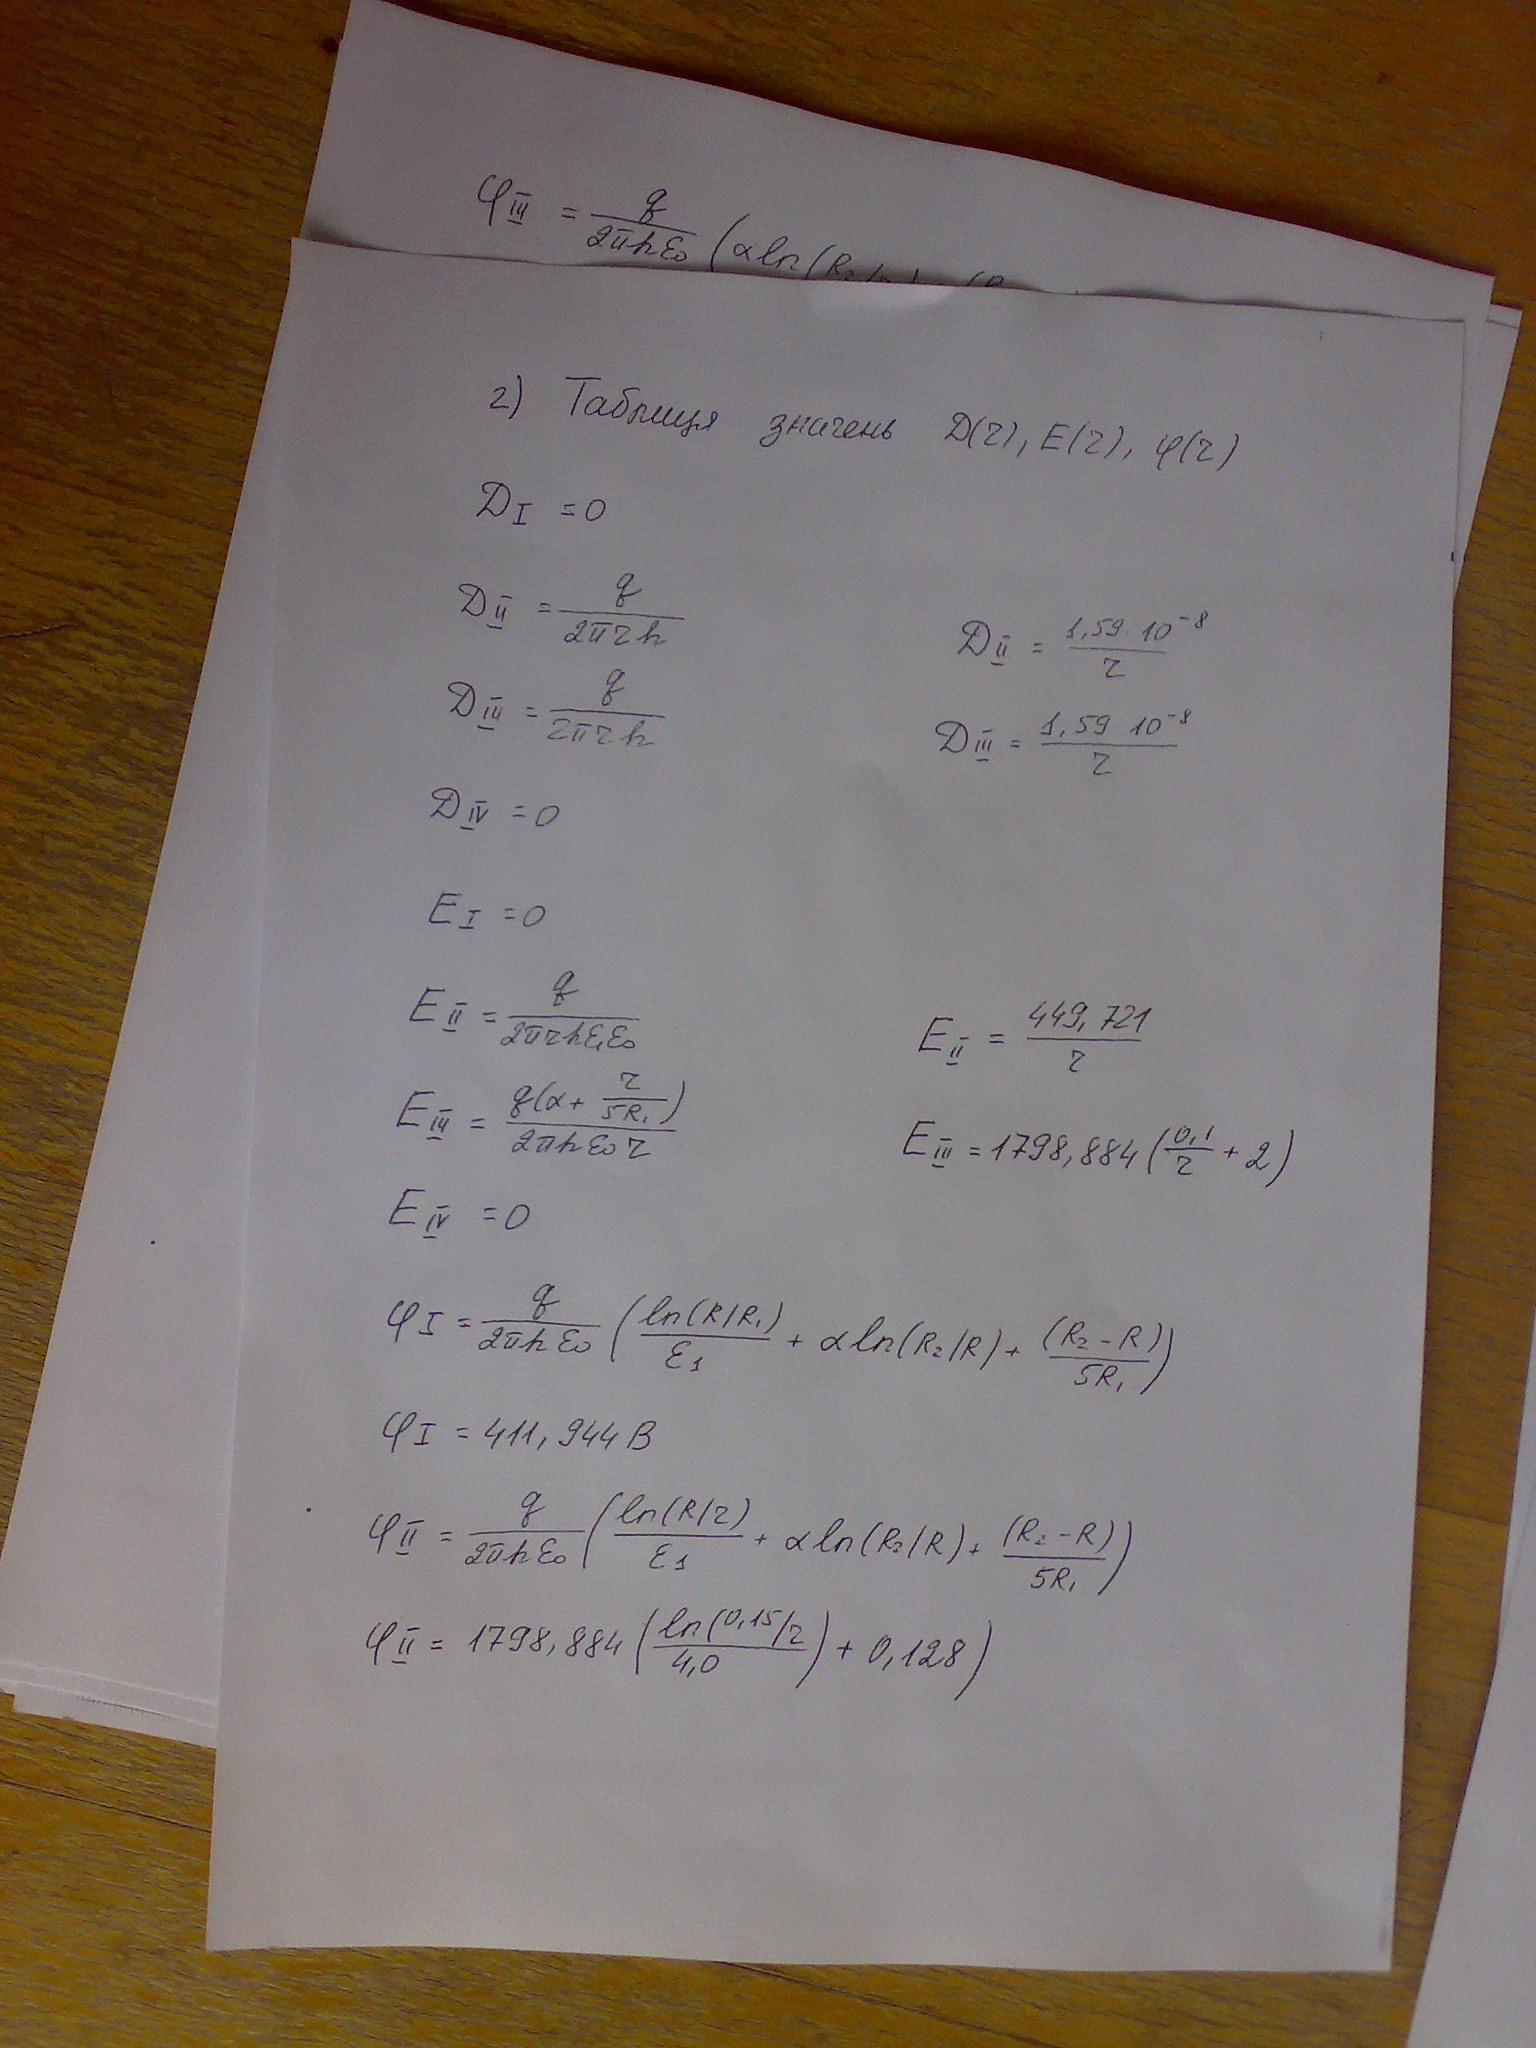 φ_III = q/(2πhε₀) (α ln(R₂/
2) Таблиця значень D(r), E(r), φ(r)
D_I = 0
D_II = q/(2πrh) D_II = 1,59·10⁻⁸/r
D_III = q/(2πrh) D_III = 1,59 10⁻⁸/r
D_IV = 0
E_I = 0
E_II = q/(2πrhε₁ε₀) E_II = 449,721/r
E_III = q(α + r/(5R₁))/(2πhε₀r) E_III = 1798,884(0,1/r + 2)
E_IV = 0
φ_I = q/(2πhε₀) (ln(R/R₁)/ε₁ + α ln(R₂/R) + (R₂ - R)/(5R₁))
φ_I = 411,944 В
φ_II = q/(2πhε₀) (ln(R/r)/ε₁ + α ln(R₂/R) + (R₂ - R)/(5R₁))
φ_II = 1798,884 (ln(0,15/r)/4,0) + 0,128)